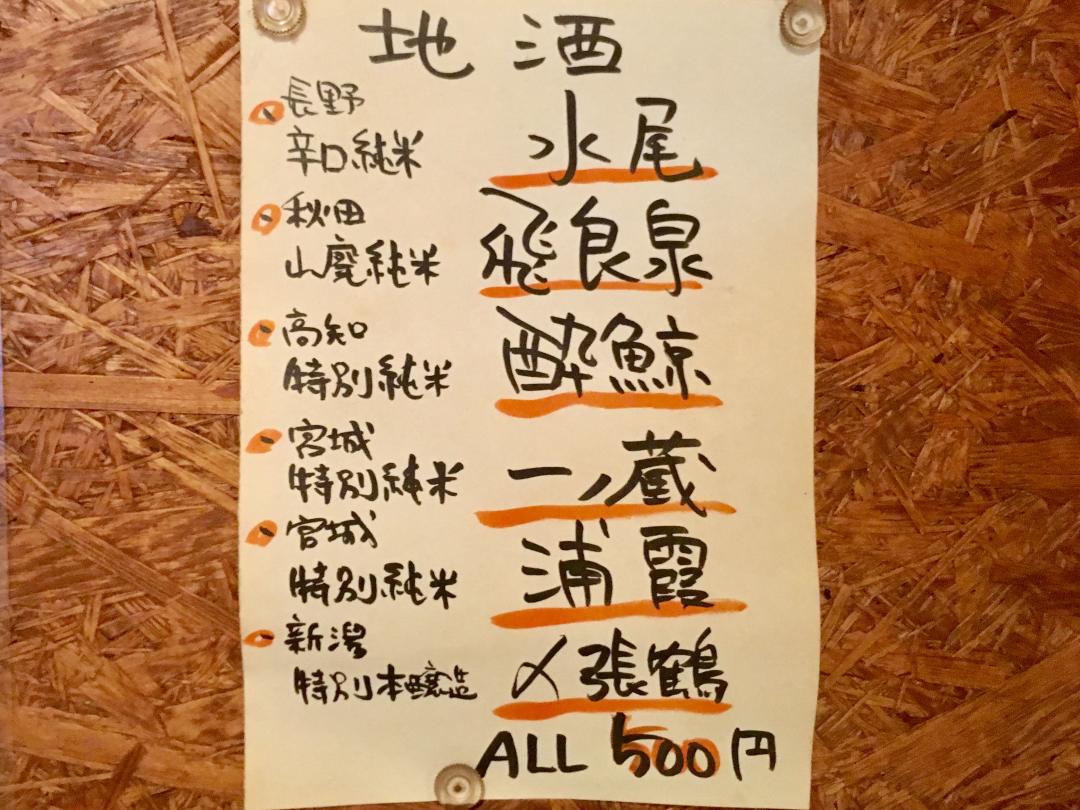 地酒
長野
辛口純米 水尾
秋田
山廃純米 飛良泉
高知
特別純米 酔鯨
宮城
特別純米 一ノ蔵
宮城
特別純米 浦霞
新潟
特別本醸造 〆張鶴
ALL 500円